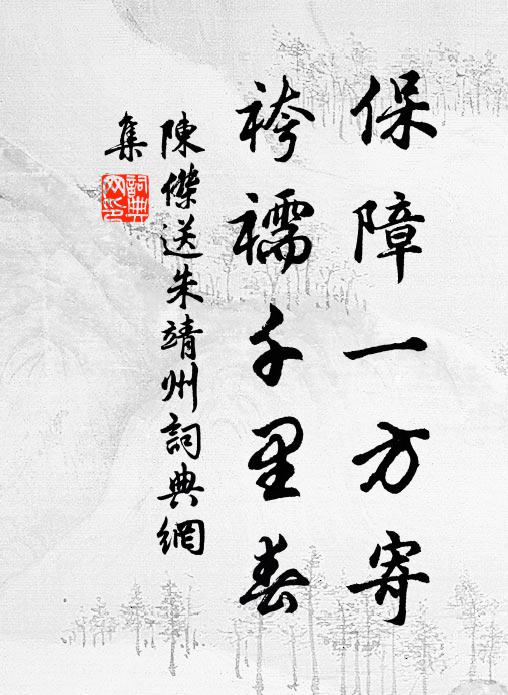 保障一方寄
袴襦千里春
陳傑送朱靖州詞典網
集
詞典網印